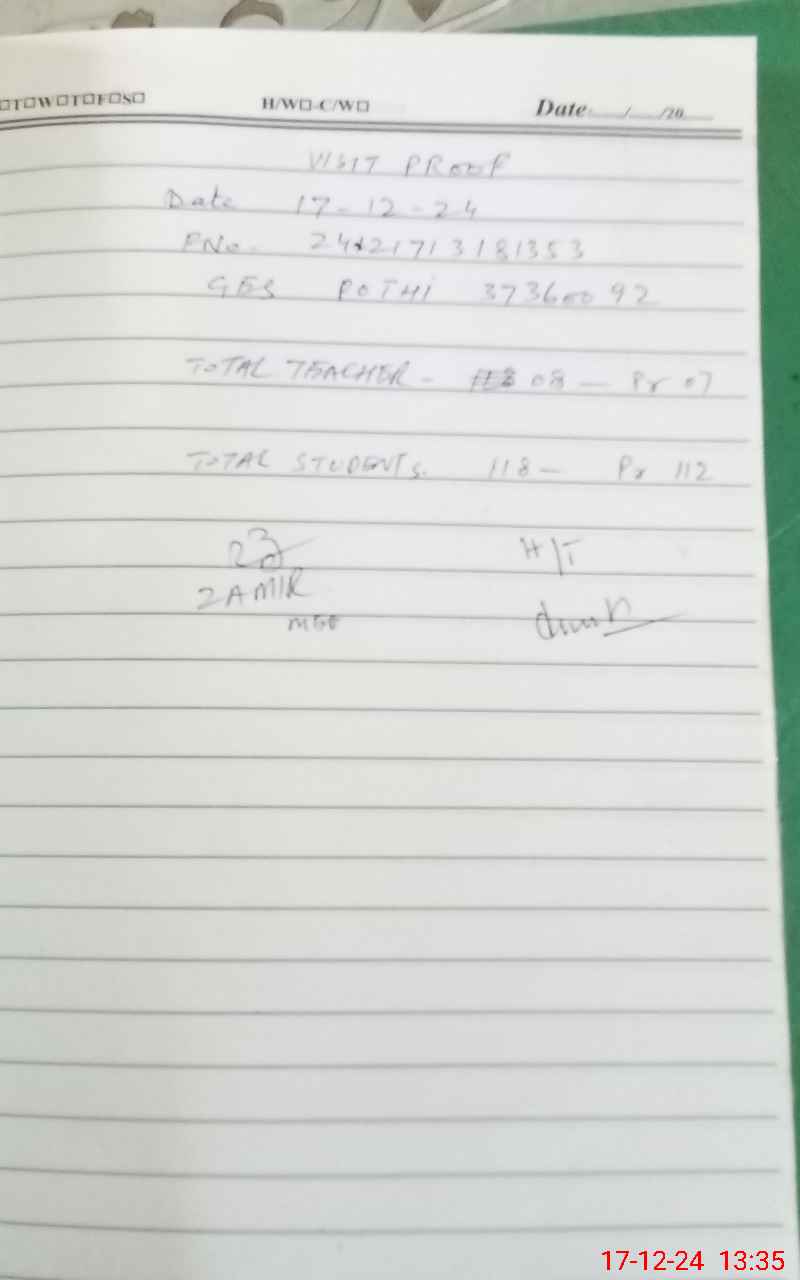 □T□W□T□F□S□ H/W□-C/W□ Date____/____/20____
VISIT PROOF
Date 17-12-24
FNo. 24121713181353
GES POTHI 37360092
TOTAL TEACHER - 08 - Pr 07
TOTAL STUDENTS. 118 - Pr 112
H/T
ZAMIR
17-12-24 13:35